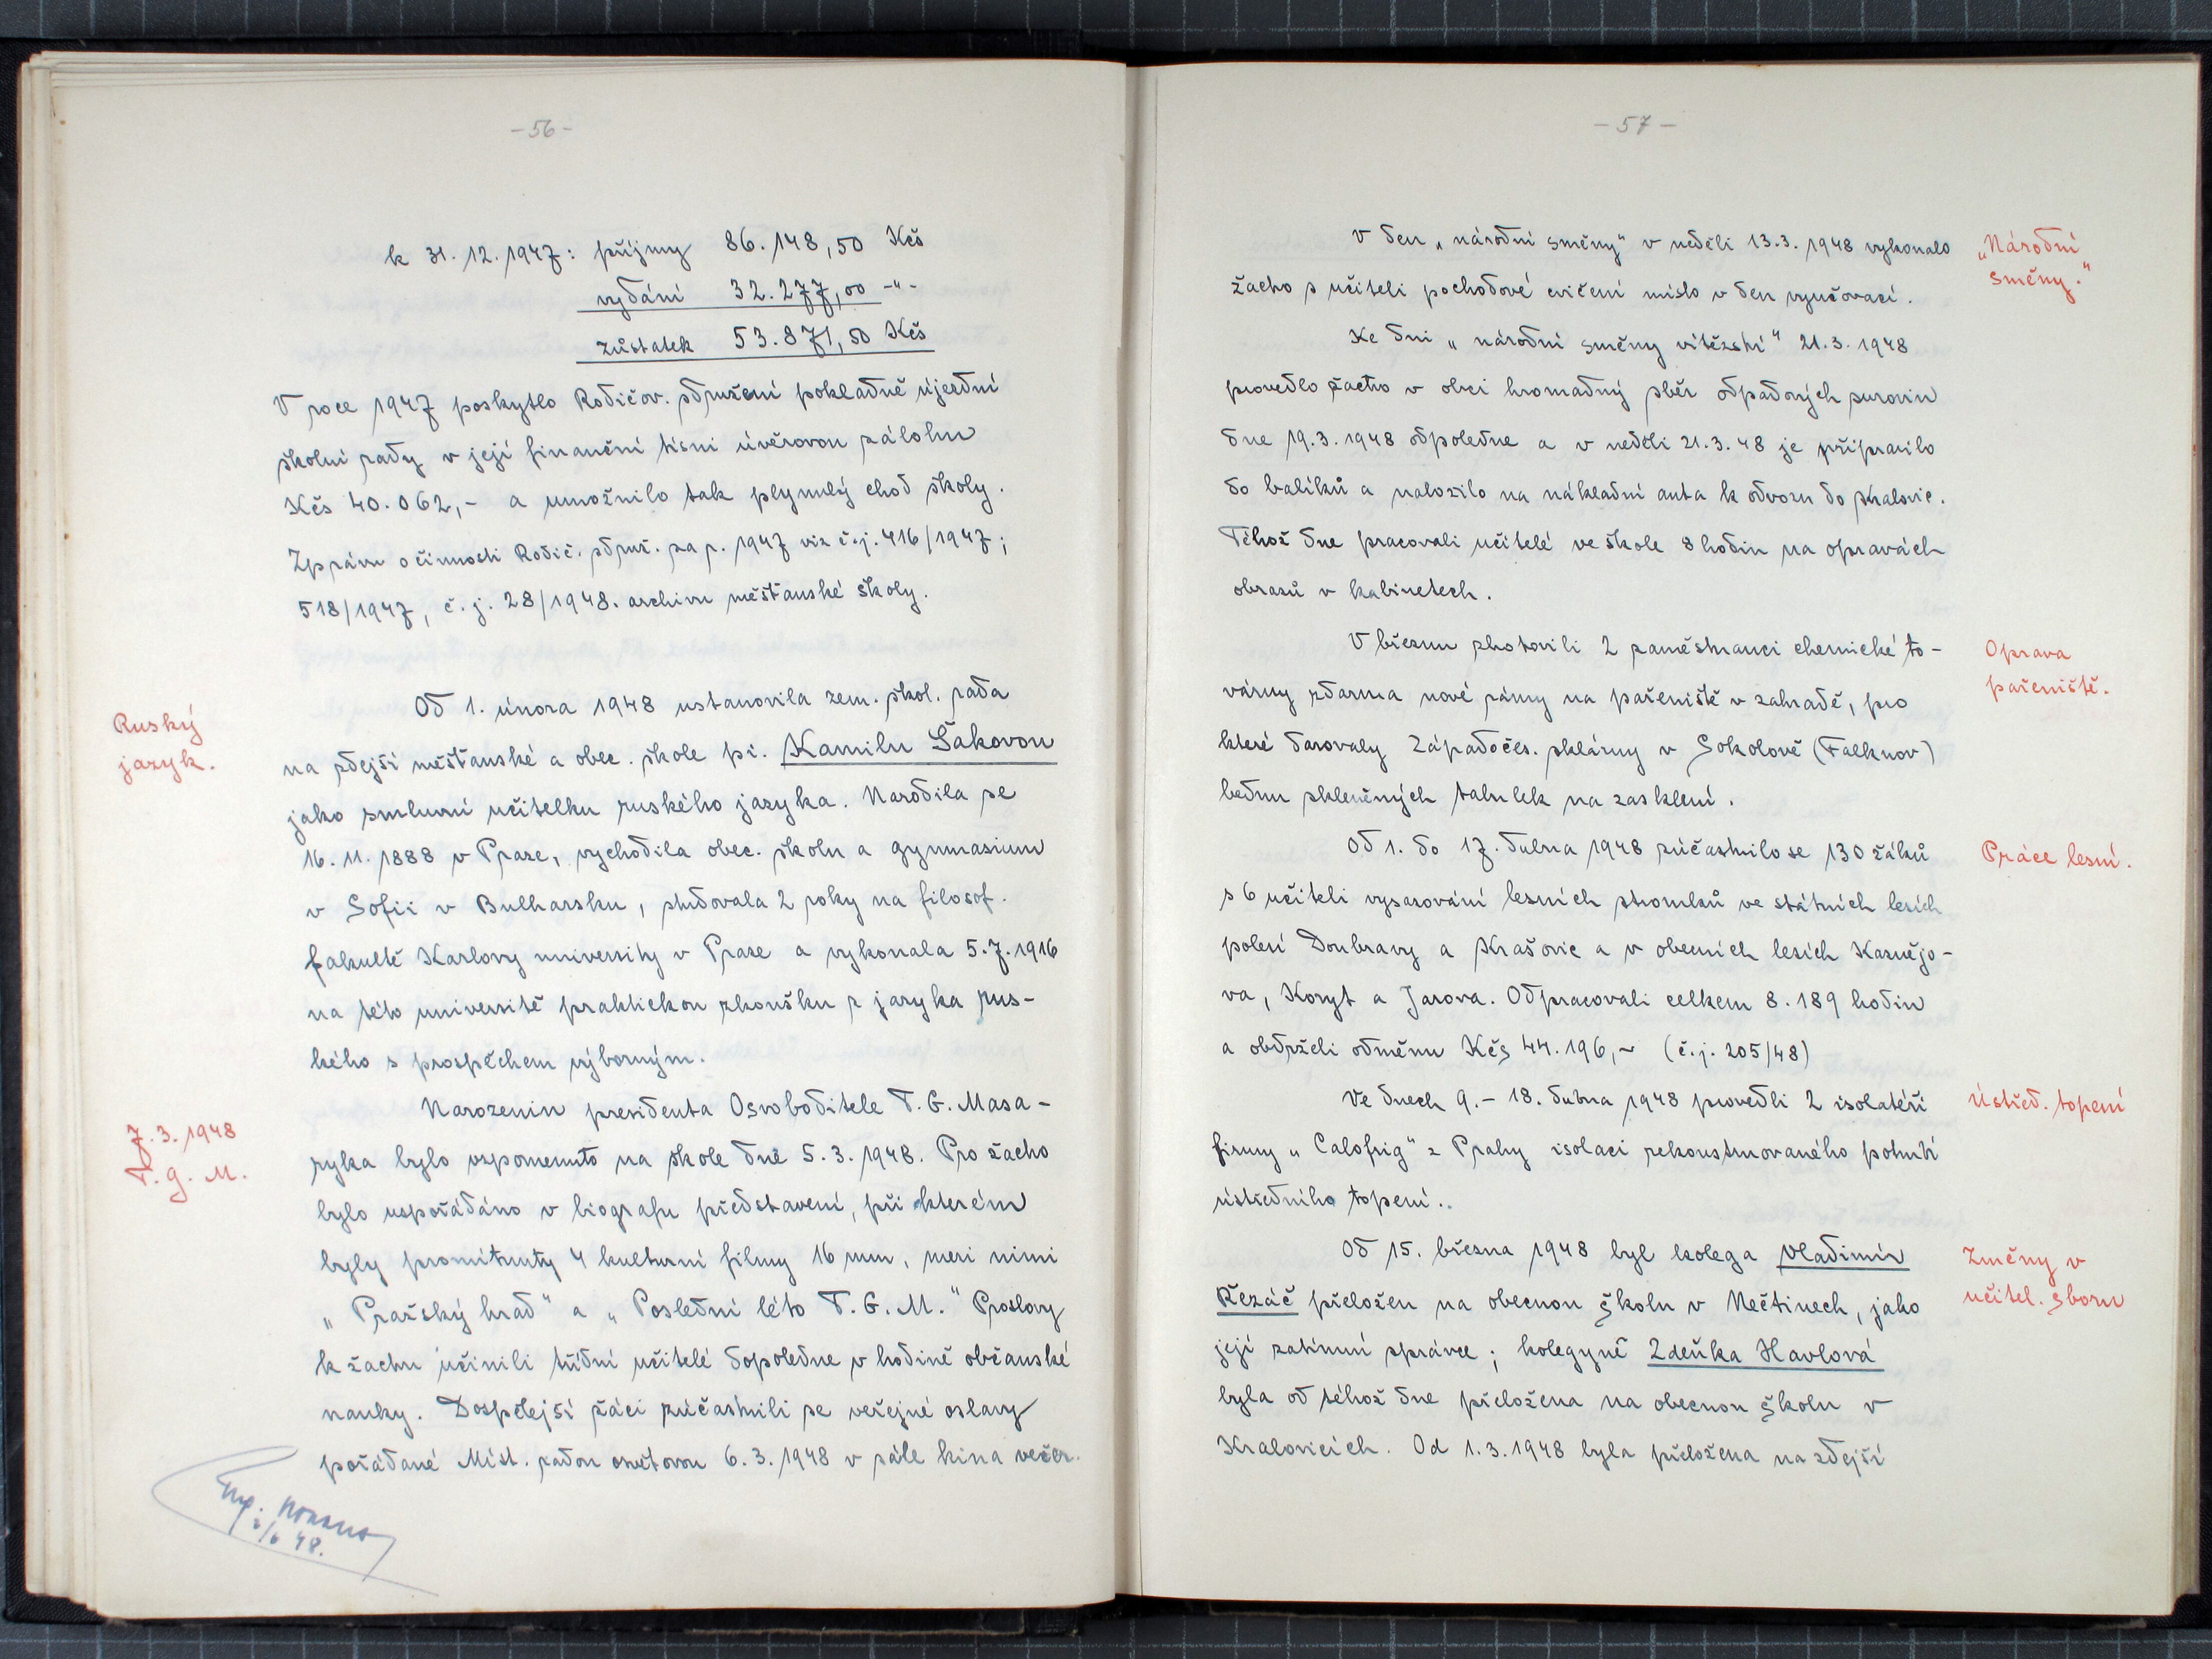 -56-
k 31.12.1947: příjmy 86.148,50 Kčs
vydání 32.277,00 -"-
zůstatek 53.871,50 Kčs
V roce 1947 poskytlo Rodičov. sdružení pokladně újezdní
školní rady v její finanční tísni úvěrovou zálohu
Kčs 40.062,- a umožnilo tak plynulý chod školy.
Zprávu o činnosti Rodič. sdruž. za r. 1947 viz č.j. 416/1947;
518/1947, č.j. 28/1948. archivu měšťanské školy.
Ruský
jazyk.
Od 1. února 1948 ustanovila zem. škol. rada
na zdejší měšťanské a obec. škole pí. Kamilu Šakovou
jako smluvní učitelku ruského jazyka. Narodila se
16.11.1888 v Praze, vychodila obec. školu a gymnasium
v Sofii v Bulharsku, studovala 2 roky na filosof.
fakultě Karlovy university v Praze a vykonala 5.7.1916
na této universitě praktickou zkoušku z jazyka rus-
kého s prospěchem výborným.
7.3.1948
T.G.M.
Narozenin presidenta Osvoboditele T.G. Masa-
ryka bylo vzpomenuto na škole dne 5.3.1948. Pro žactvo
bylo uspořádáno v biografu představení, při kterém
byly promítnuty 4 kulturní filmy 16 mm, mezi nimi
„Pražský hrad" a „Poslední léto T.G.M." Proslovy
k žactvu učinili třídní učitelé dopoledne v hodině občanské
nauky. Dospělejší žáci zúčastnili se veřejné oslavy
pořádané Míst. radou osvětovou 6.3.1948 v sále kina večer.
48.
-57-
V den „národní směny" v neděli 13.3.1948 vykonalo
žactvo s učiteli pochodové cvičení místo v den vyučovací.
„Národní
směny."
Ke dni „národní směny vítězství" 21.3.1948
provedlo žactvo v obci hromadný sběr odpadových surovin
dne 19.3.1948 odpoledne a v neděli 21.3.48 je připravilo
do balíků a naložilo na nákladní auta k odvozu do Kralovic.
Téhož dne pracovali učitelé ve škole 8 hodin na opravách
obrazů v kabinetech.
V březnu zhotovili 2 zaměstnanci chemické to-
várny zdarma nové rámy na pařeniště v zahradě, pro
které darovaly Západočes. sklárny v Sokolově (Falknov)
bednu skleněných tabulek na zasklení.
Oprava
pařeniště.
Od 1. do 17. dubna 1948 zúčastnilo se 130 žáků
s 6 učiteli vysazování lesních stromků ve státních lesích
polesí Doubravy a Krašovic a v obecních lesích Kaznějo-
va, Koryt a Jarova. Odpracovali celkem 8.189 hodin
a obdrželi odměnu Kčs 44.196,- (č.j. 205/48)
Práce lesní.
Ve dnech 9.-18. dubna 1948 provedli 2 isolatéři
firmy „Calofrig" z Prahy isolaci rekonstruovaného potrubí
ústředního topení.
Ústřed. topení
Od 15. března 1948 byl kolega Vladimír
Řezáč přeložen na obecnou školu v Nečtinech, jako
její zatímní správce; kolegyně Zdeňka Havlová
byla od téhož dne přeložena na obecnou školu v
Kralovicích. Od 1.3.1948 byla přeložena na zdejší
Změny v
učitel. sboru